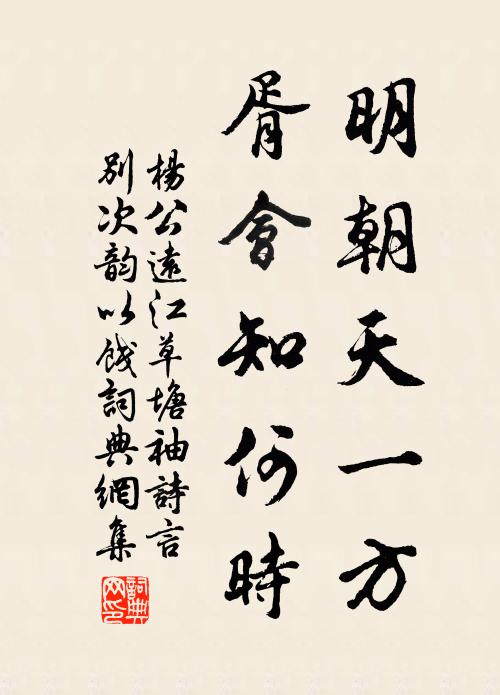 明朝天一方
胥會知何時
楊公遠江草塘袖詩言
別次韵以餞詞典網集
詞典网印